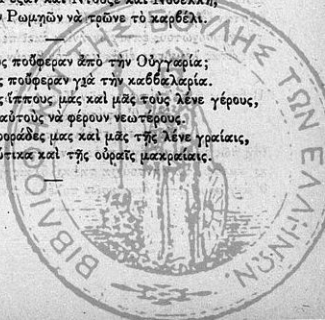 καὶ
Ρωμηῶν νὰ τρῶνε τὸ καρβέλι.
ποὔφεραν ἀπὸ τὴν Οὑγγαρία;
ποὔφεραν γιὰ τὴν καββαλαρία.
ἵππους μας καὶ μᾶς τοὺς λένε γέρους,
αὐτοὺς νὰ φέρουν νεωτέρους.
φοράδες μας καὶ μᾶς τῆς λένε γραίαις,
καὶ τῆς οὐραῖς μακραίαις.
ΒΙΒΛΙΟ ΤΗΣ ΒΟΥΛΗΣ ΤΩΝ ΕΛΛΗΝΩΝ